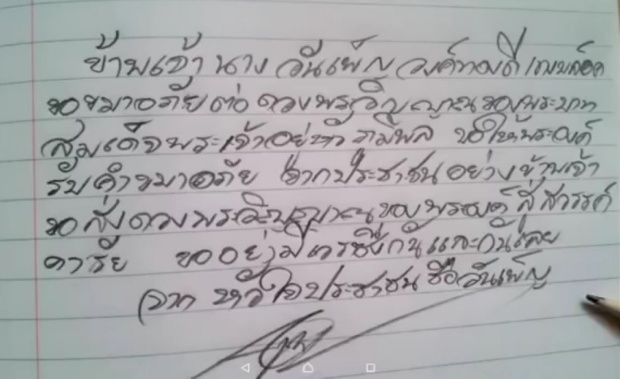 ข้าพเจ้า นาง วันเพ็ญ วงค์ทองดี
ขอขมาอภัยต่อ ดวงพระวิญญาณ ของพระบาท
สมเด็จพระเจ้าอยู่หัว ภูมิพล ขอให้พระองค์
รับคำขมาอภัย จากประชาชนอย่างข้าพเจ้า
ขอ ส่งดวงพระวิญญาณ ของพระองค์ สู่สวรรค์
ขออย่ามีเวรซึ่งกันและกันเลย
จาก หัวใจประชาชน ชื่อวันเพ็ญ